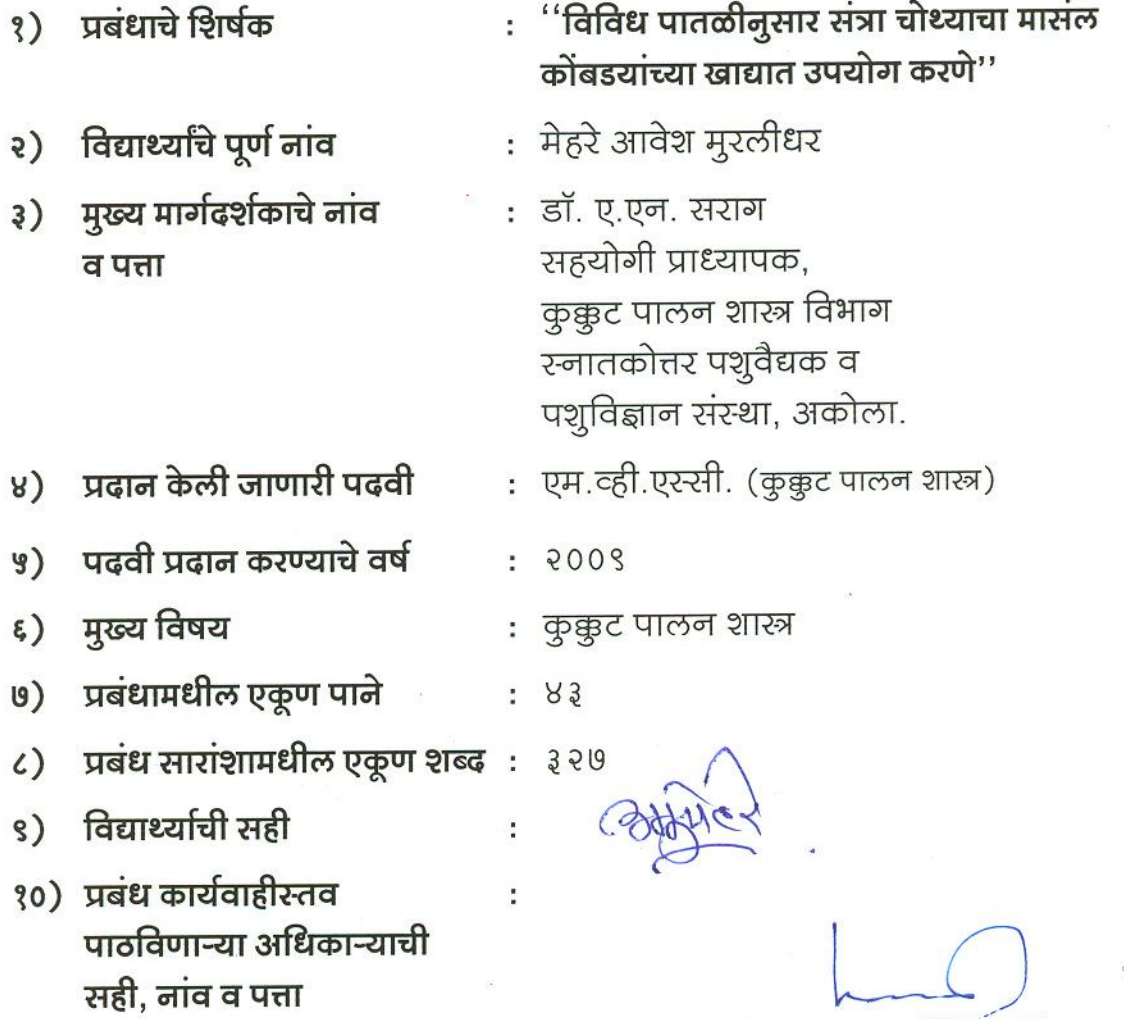 १) प्रबंधाचे शिर्षक : ‘‘विविध पातळीनुसार संत्रा चोथ्याचा मासंल
कोंबडयांच्या खाद्यात उपयोग करणे’’
२) विद्यार्थ्यांचे पूर्ण नांव : मेहरे आवेश मुरलीधर
३) मुख्य मार्गदर्शकाचे नांव : डॉ. ए.एन. सराग
व पत्ता सहयोगी प्राध्यापक,
कुक्कुट पालन शास्त्र विभाग
स्नातकोत्तर पशुवैद्यक व
पशुविज्ञान संस्था, अकोला.
४) प्रदान केली जाणारी पदवी : एम.व्ही.एस्सी. (कुक्कुट पालन शास्त्र)
५) पदवी प्रदान करण्याचे वर्ष : २००९
६) मुख्य विषय : कुक्कुट पालन शास्त्र
७) प्रबंधामधील एकूण पाने : ४३
८) प्रबंध सारांशामधील एकूण शब्द : ३२७
९) विद्यार्थ्याची सही :
१०) प्रबंध कार्यवाहीस्तव :
पाठविणाऱ्या अधिकाऱ्याची
सही, नांव व पत्ता